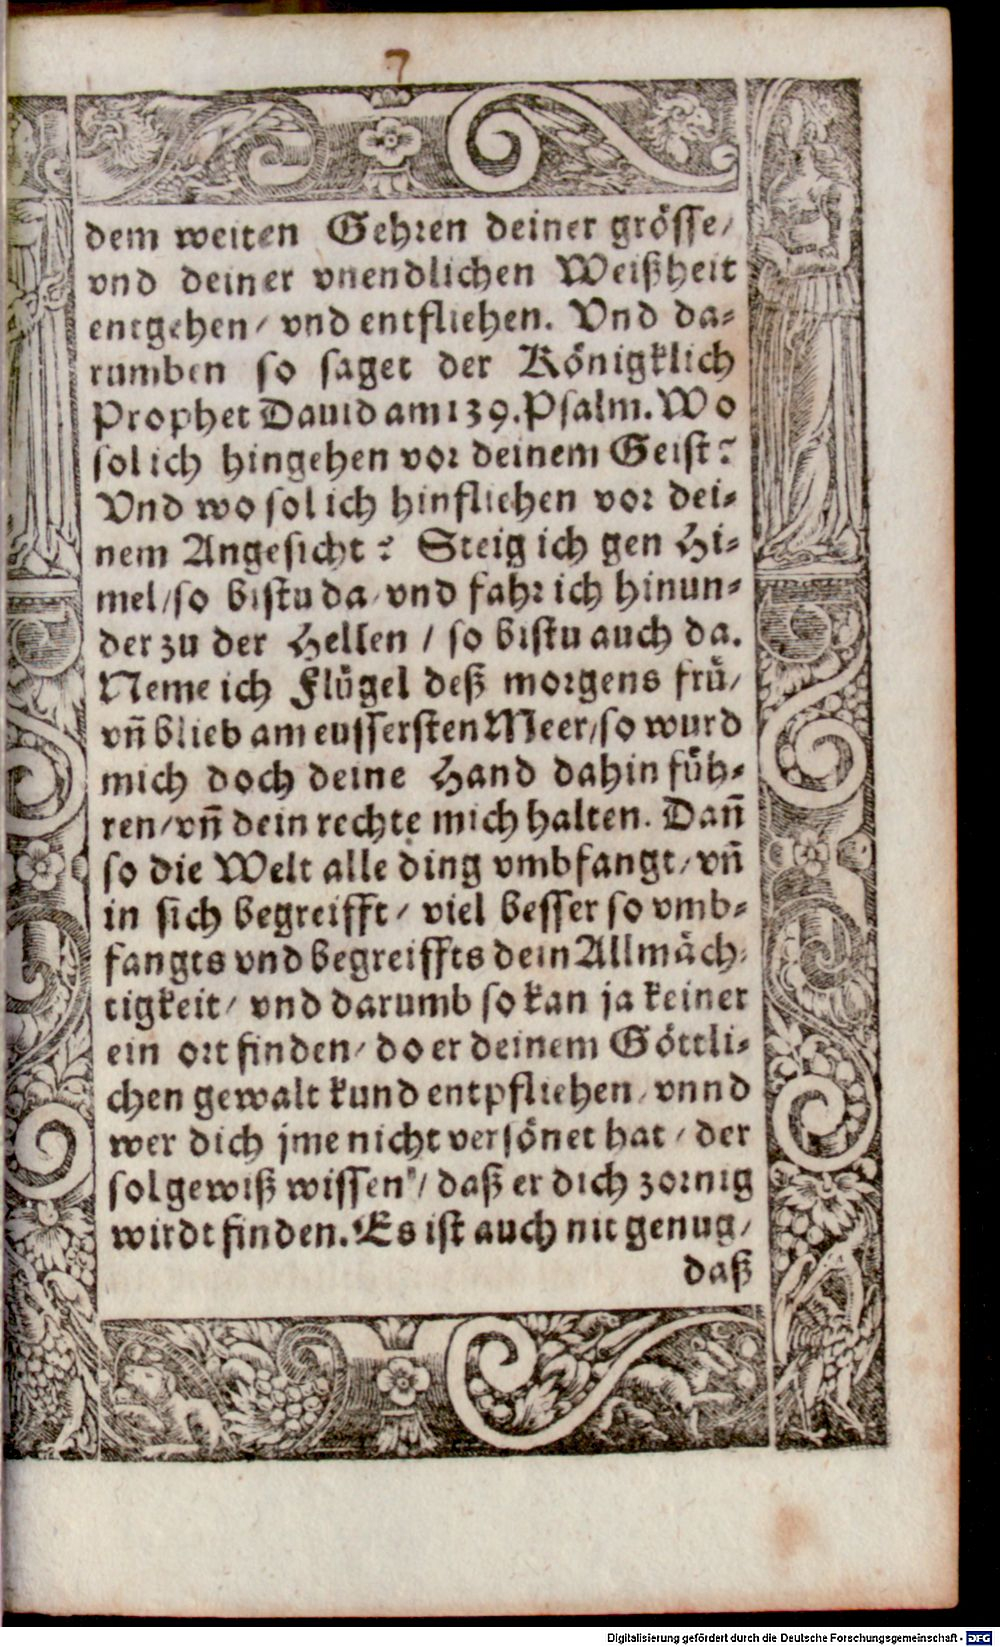 7
dem weiten Gehren deiner grösse/
vnd deiner vnendlichen Weißheit
entgehen/ vnd entfliehen. Vnd da-
rumben so saget der Königklich
Prophet Dauid am 139. Psalm. Wo
sol ich hingehen vor deinem Geist?
Vnd wo sol ich hinfliehen vor dei-
nem Angesicht? Steig ich gen Hi-
mel/ so bistu da/ vnd fahr ich hinun-
der zu der Hellen / so bistu auch da.
Neme ich Flügel deß morgens frü/
vñ blieb am eussersten Meer/ so wurd
mich doch deine Hand dahin füh-
ren/ vñ dein rechte mich halten. Dañ
so die Welt alle ding vmbfangt/ vñ
in sich begreifft/ viel besser so vmb-
fangts vnd begreiffts dein Allmäch-
tigkeit/ vnd darumb so kan ja keiner
ein ort finden/ do er deinem Göttli-
chen gewalt kund entpfliehen/ vnnd
wer dich jme nicht versönet hat/ der
sol gewiß wissen/ daß er dich zornig
wirdt finden. Es ist auch nit genug/
daß
Digitalisierung gefördert durch die Deutsche Forschungsgemeinschaft - DFG